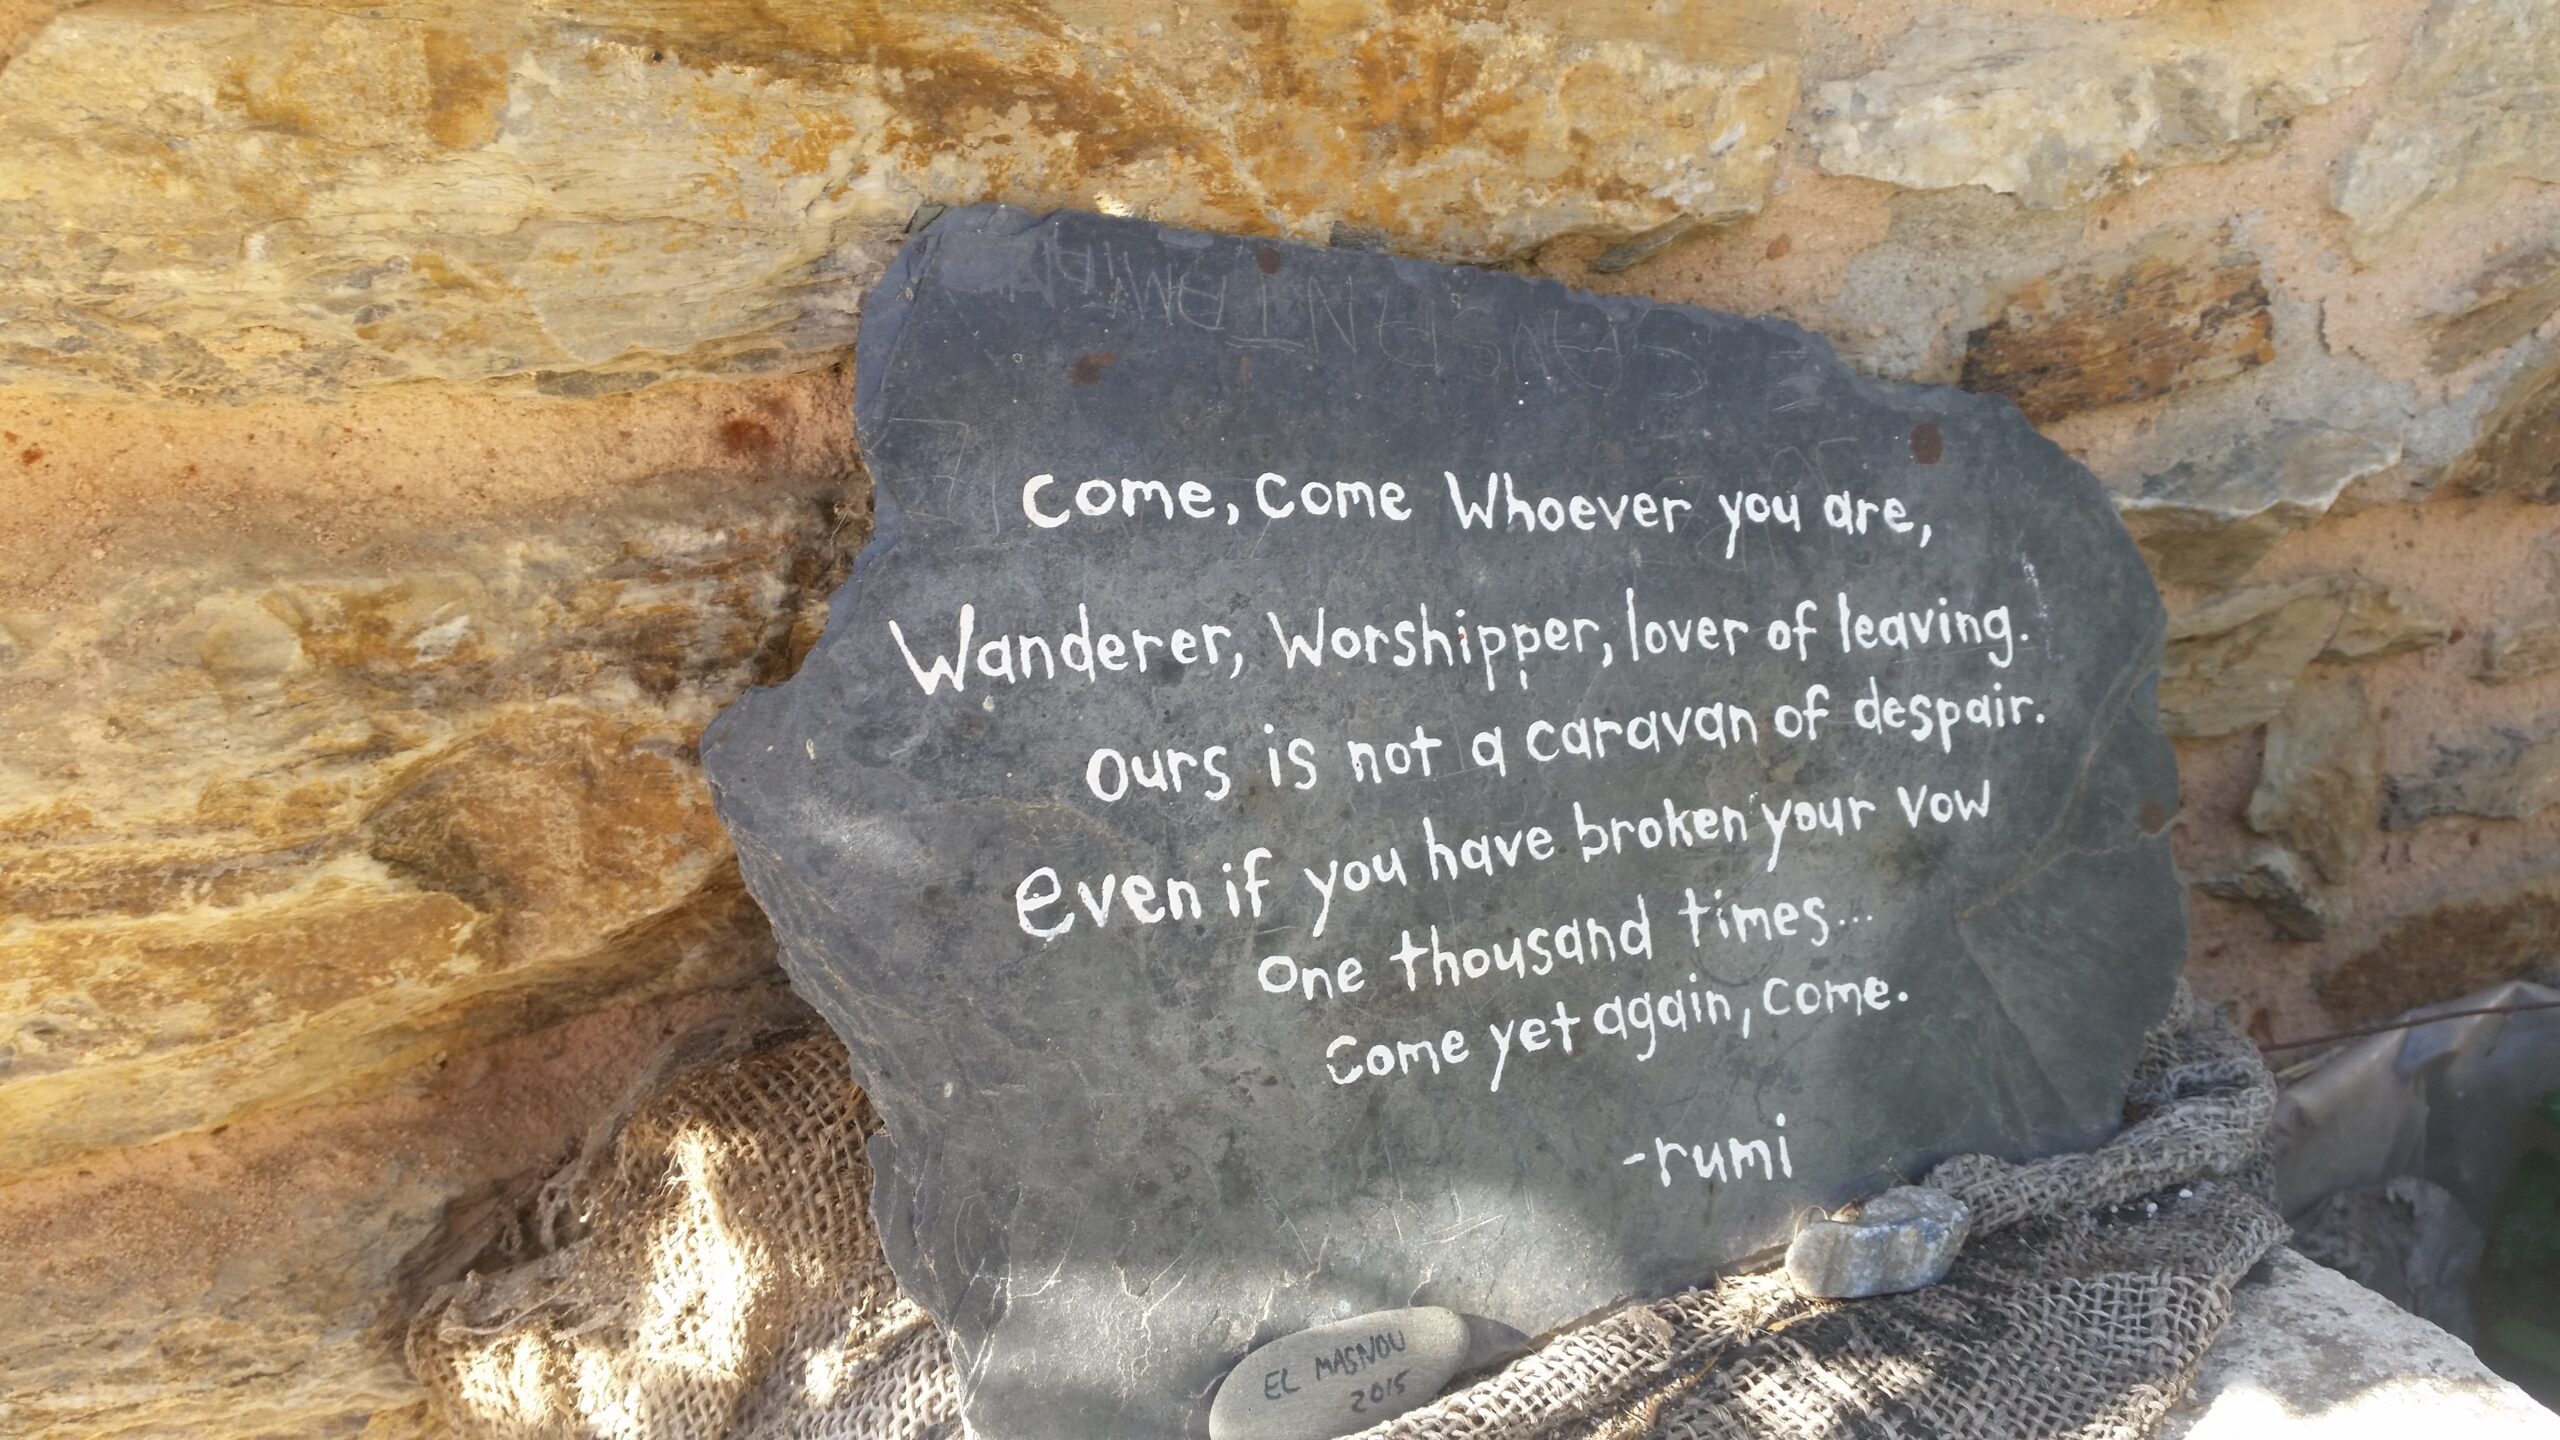 Come, Come Whoever you are,
Wanderer, Worshipper, lover of leaving.
ours is not a caravan of despair.
Even if you have broken your vow
one thousand times...
Come yet again, come.
-rumi
EL MASNOU
2015